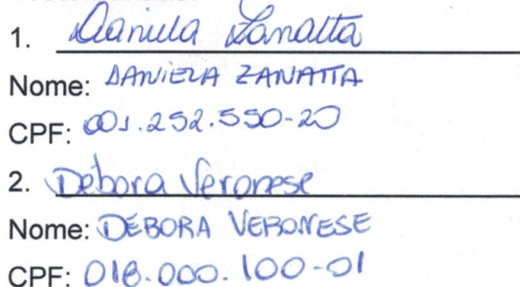 1. Daniela Zanatta
Nome: DANIELA ZANATTA
CPF: 001.252.550-20
2. Debora Veronese
Nome: DEBORA VERONESE
CPF: 018.000.100-01